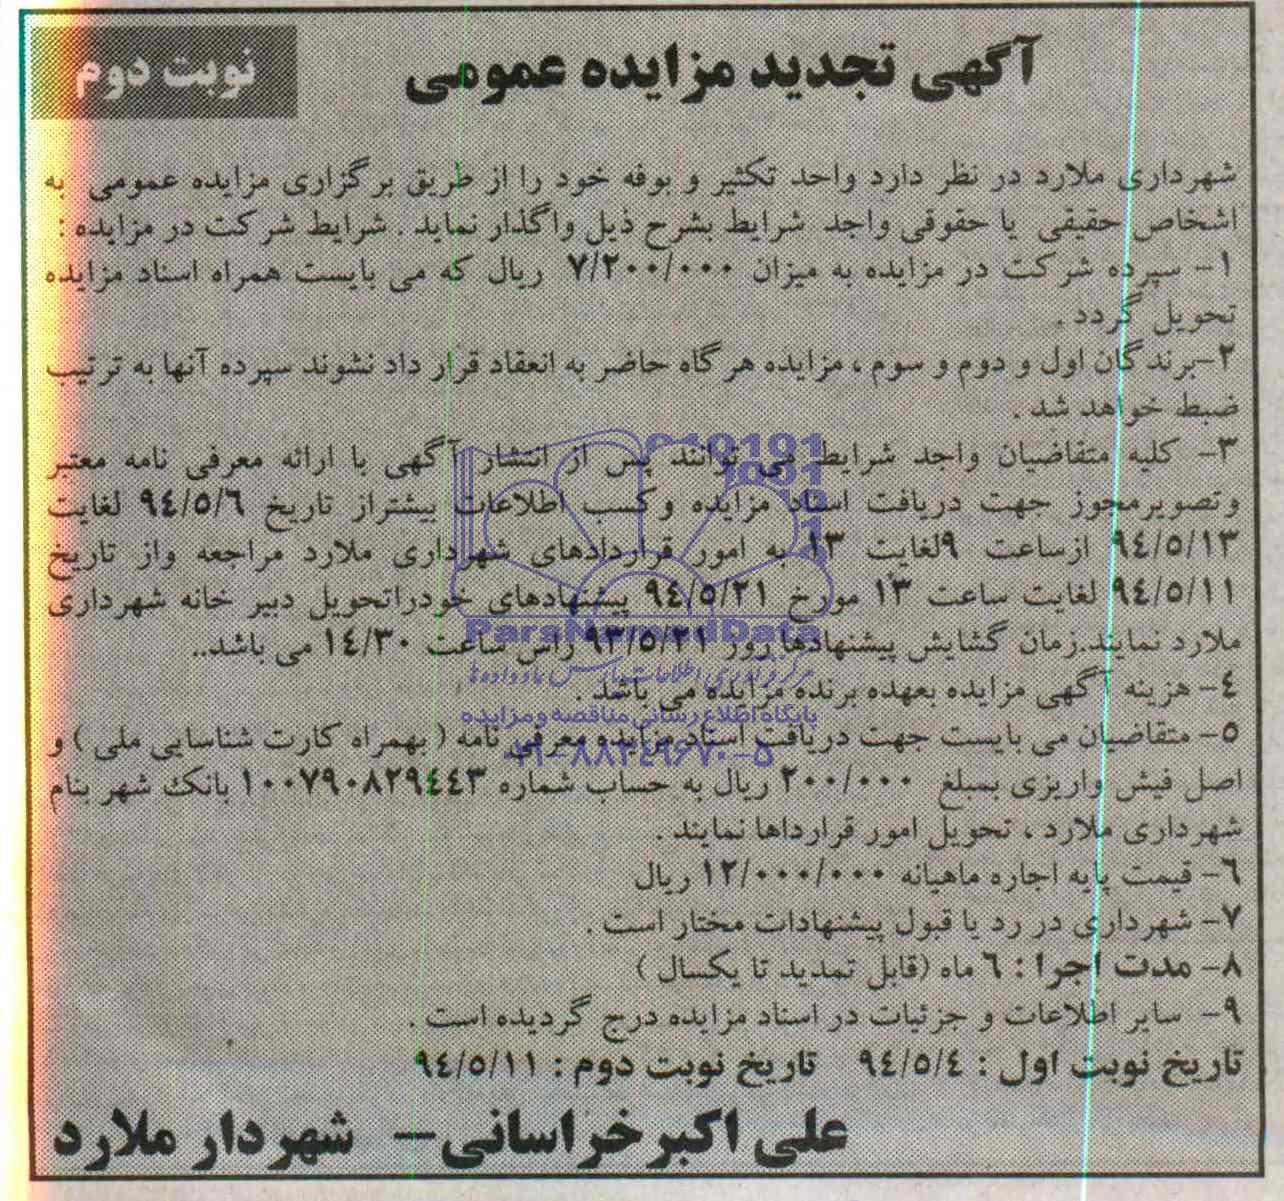 آگهی تجدید مزایده عمومی
نوبت دوم
شهرداری ملارد در نظر دارد واحد تکثیر و بوفه خود را از طریق برگزاری مزایده عمومی به
اشخاص حقیقی یا حقوقی واجد شرایط بشرح ذیل واگذار نماید . شرایط شرکت در مزایده :
۱- سپرده شرکت در مزایده به میزان ۷/۲۰۰/۰۰۰ ریال که می بایست همراه اسناد مزایده
تحویل گردد .
۲-برندگان اول و دوم و سوم ، مزایده هرگاه حاضر به انعقاد قرار داد نشوند سپرده آنها به ترتیب
ضبط خواهد شد .
۳- کلیه متقاضیان واجد شرایط می توانند پس از انتشار آگهی با ارائه معرفی نامه معتبر
وتصویرمجوز جهت دریافت اسناد مزایده وکسب اطلاعات بیشتراز تاریخ ۹٤/٥/٦ لغایت
۹٤/٥/۱۳ ازساعت ۹لغایت ۱۳ به امور قراردادهای شهرداری ملارد مراجعه واز تاریخ
۹٤/٥/۱۱ لغایت ساعت ۱۳ مورخ ۹٤/٥/۲۱ پیشنهادهای خودراتحویل دبیر خانه شهرداری
ملارد نمایند.زمان گشایش پیشنهادها روز ۹۳/٥/۲۱ راس ساعت ۱٤/۳۰ می باشد..
٤- هزینه آگهی مزایده بعهده برنده مزایده می باشد .
٥- متقاضیان می بایست جهت دریافت اسناد مزایده معرفی نامه ( بهمراه کارت شناسایی ملی ) و
اصل فیش واریزی بمبلغ ۲۰۰/۰۰۰ ریال به حساب شماره ۱۰۰۷۹۰۸۲۹٤٤۳ بانک شهر بنام
شهرداری ملارد ، تحویل امور قرارداها نمایند .
٦- قیمت پایه اجاره ماهیانه ۱۲/۰۰۰/۰۰۰ ریال
۷- شهرداری در رد یا قبول پیشنهادات مختار است .
۸- مدت اجرا : ٦ ماه (قابل تمدید تا یکسال )
۹- سایر اطلاعات و جزئیات در اسناد مزایده درج گردیده است .
تاریخ نوبت اول : ۹٤/٥/٤ تاریخ نوبت دوم : ۹٤/٥/۱۱
علی اکبرخراسانی- شهردار ملارد
ParsNamadData
مرکز فرآوری اطلاعات پارس نماد داده ها
پایگاه اطلاع رسانی مناقصه و مزایده
۰۲۱-۸۸۳۴۹۶۷۰-۵